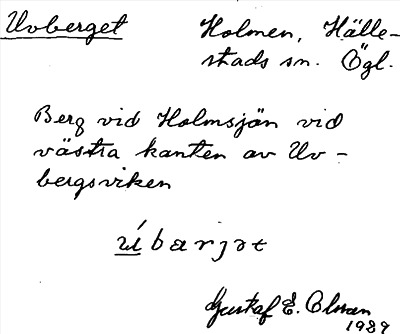 Uvberget
Holmen, Hälle-
stads sn. Ögl.
Berg vid Holmsjön vid
västra kanten av Uv-
bergsviken
ú b a r j ə t
Gustaf E. Olsson
1989